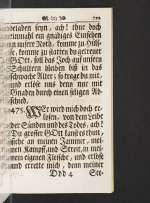 beladen seyn, ach! thue doch
einmuhl ein gnädiges Einsehen
in unsere Noth, komme zu Hülf-
fe, komme zu statten du getreuer
GOtt, soll das Joch auf unsern
Schultern bleiben biß in das
schwache Alter; so trage du mit,
und erlöse uns denn nur aus
Gnaden durch einen seligen Ab-
schied.
475. WEr wird mich doch er-
lösen, von dem Leibe
der Sünden und des Todes, ach!
Du grosser GOtt laufst das thut,
siehe an meinen Jammer, mei-
nen Kampff, und Streit, in mei-
nem eigenen Fleische, und erlöse
und errette mich, denn meiner
Ddd 4